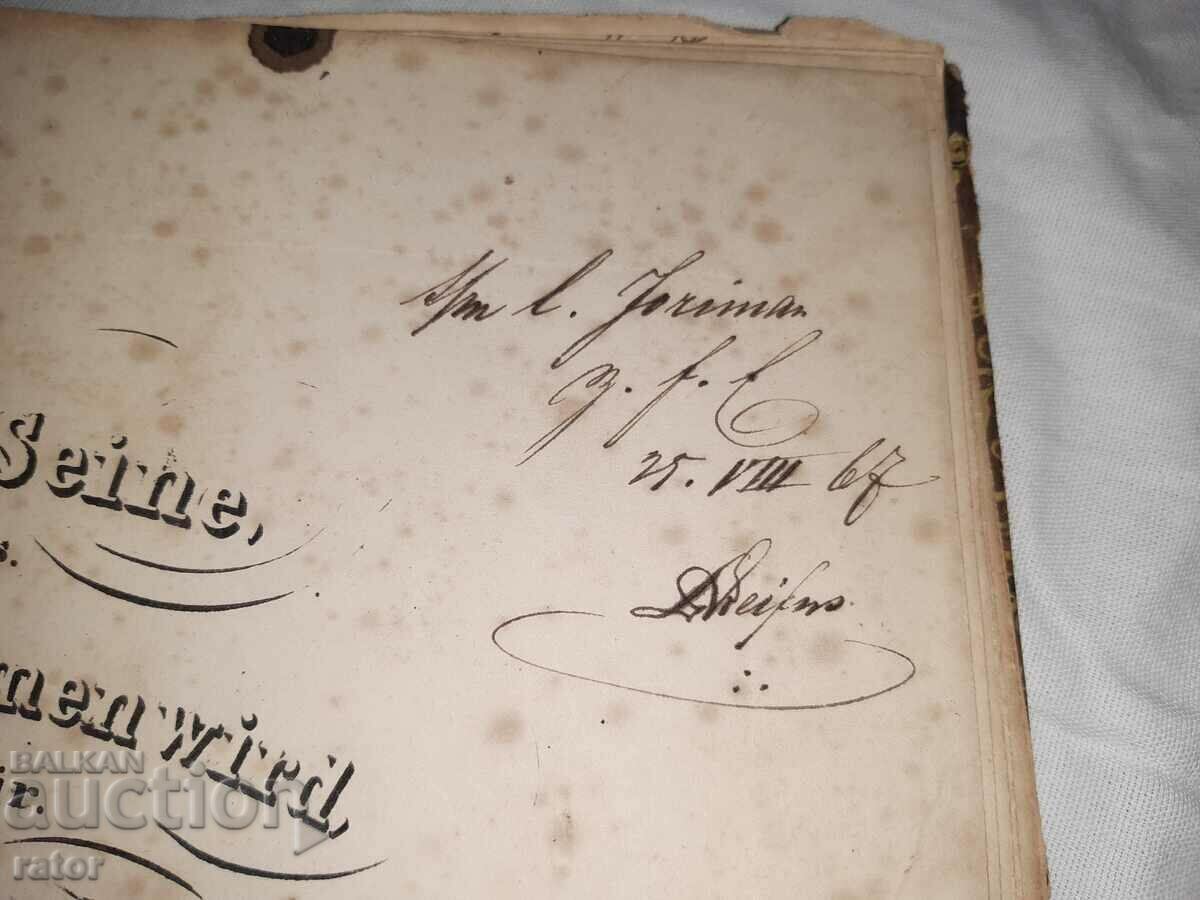 l. Joriman
z. f. E
25. VIII 67.
Seine,
s.
men wird,
ir.
BALKAN
auction
rator